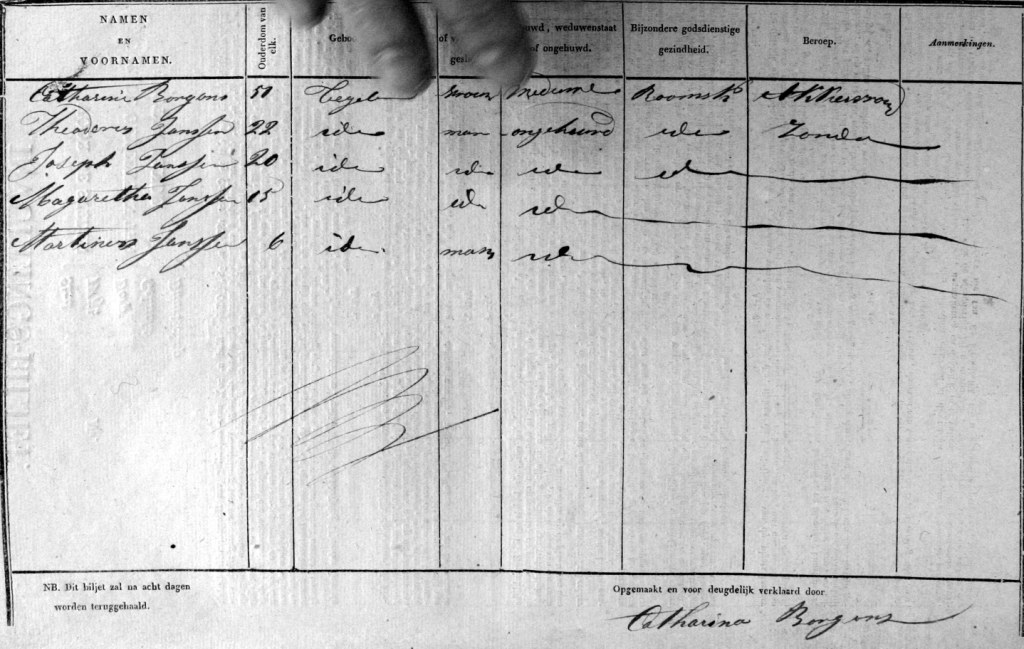 NAMEN
EN
VOORNAMEN.
Ouderdom van elk.
Gebo
of v
gesl
uwd, weduwenstaat
of ongehuwd.
Bijzondere godsdienstige
gezindheid.
Beroep.
Aanmerkingen.
Catharina Borgens 51 Tegelen vrouw weduwe Roomsk
Theodorus Janssen 22 ide man ongehuwd ide Zonder
Joseph Janssen 20 ide ide ide ide
Magaretha Janssen 15 ide ide ide
Martinus Janssen 6 ide man ide
NB. Dit biljet zal na acht dagen
worden teruggehaald.
Opgemaakt en voor deugdelijk verklaard door
Catharina Borgens